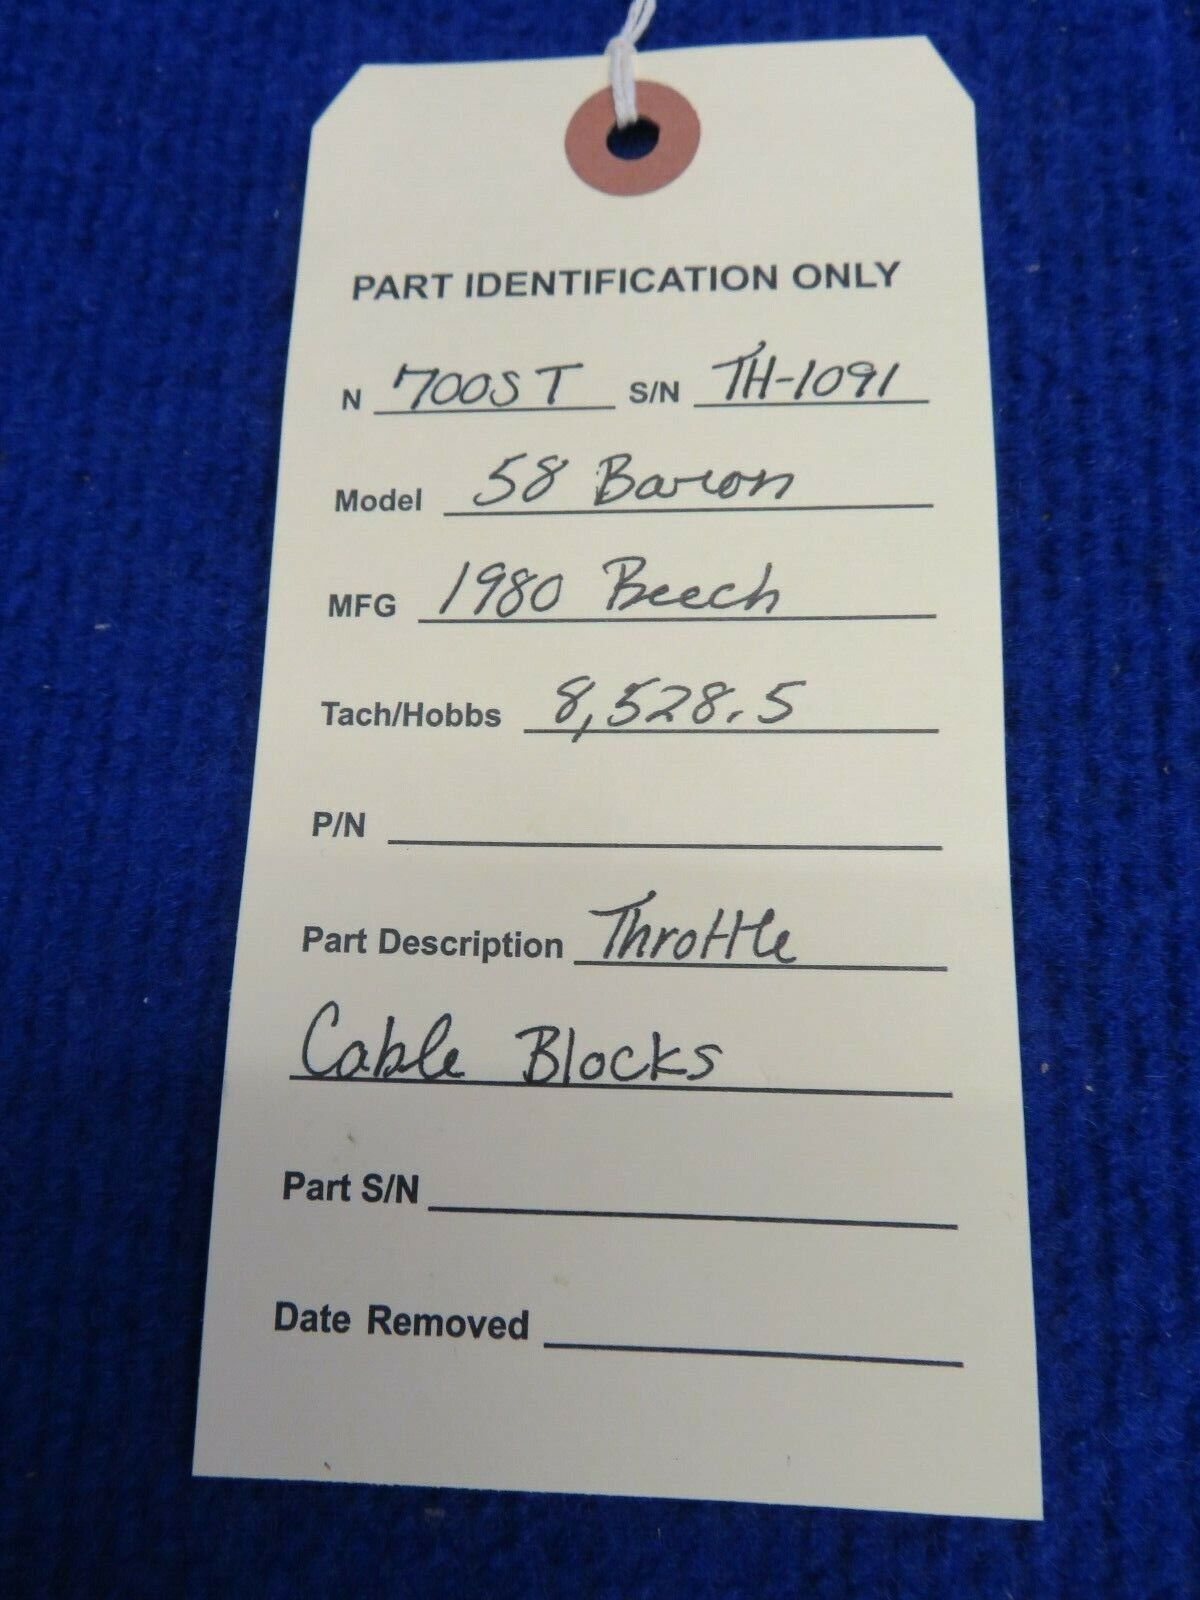 PART IDENTIFICATION ONLY
N 700ST S/N TH-1091
Model 58 Baron
MFG 1980 Beech
Tach/Hobbs 8,528.5
P/N
Part Description Throttle
Cable Blocks
Part S/N
Date Removed